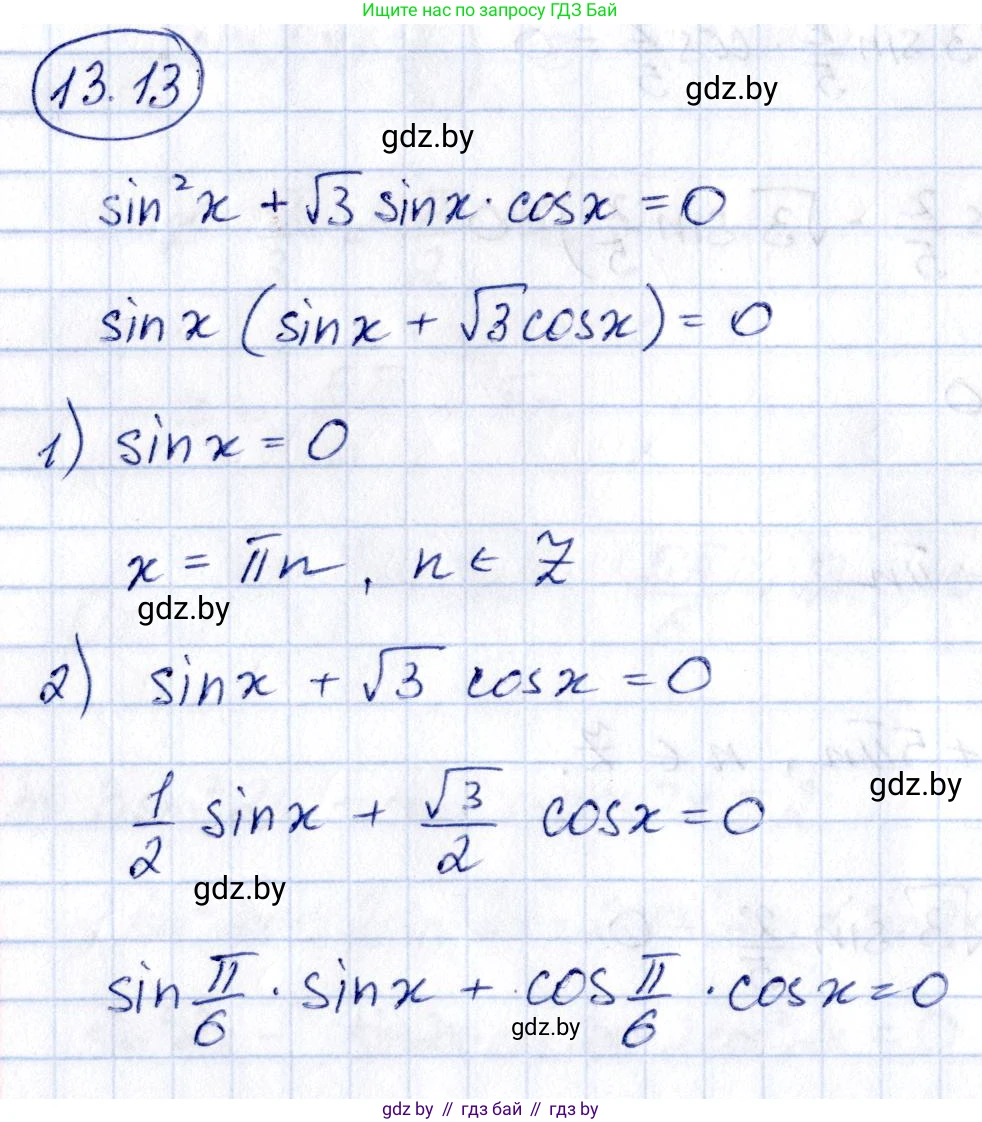 Ищите нас по запросу ГДЗ Бай
13.13
gdz.by
gdz.by
sin²x + √3 sinx · cosx = 0
sinx (sinx + √3cosx) = 0
1) sinx = 0
x = πn, n ∈ Z
gdz.by
2) sinx + √3 cosx = 0
gdz.by
1/2 sinx + √3/2 cosx = 0
gdz.by
sin π/6 · sinx + cos π/6 · cosx = 0
gdz.by
gdz.by // гдз бай // gdz.by